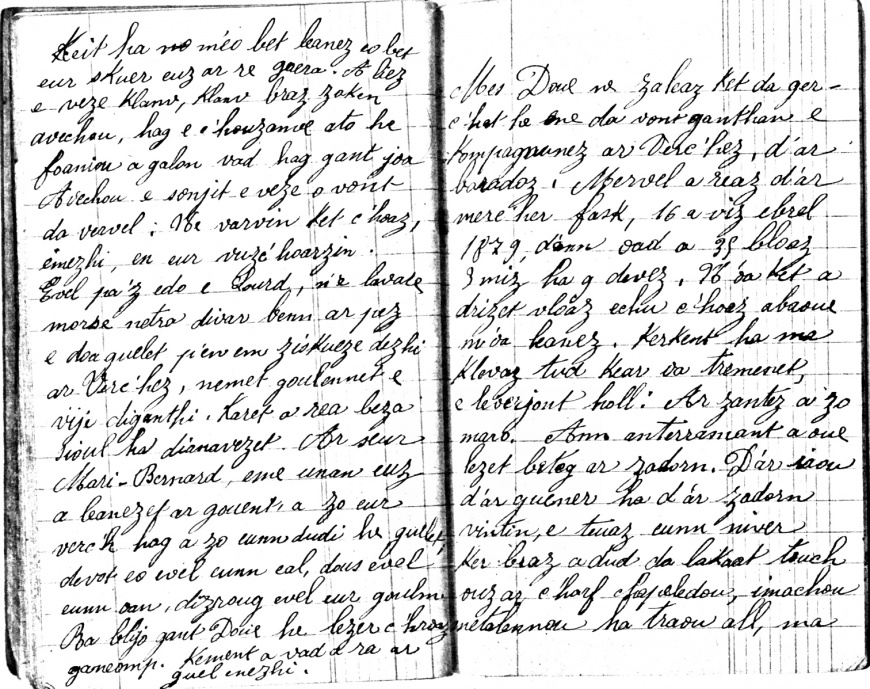 Keit ha ma méo bet leanez eo bet
eur skuer euz ar re gaera. A liez
e veze klanv, klanv braz zoken
avechou, hag e c'houzanve ato he
foaniou a galon vad hag gant joa
Avechou e sonjit e veze o vont
da vervel : Ne varvin ket c'hoaz,
emezhi, en eur vuzc'hoarzin.
Evel pa'z edo e Lourd, n'e lavare
morse netra divar benn ar pez
e doa guelet p'en em ziskueze dezhi
ar Verc'hez, nemet goulennet e
vije diganthi. Karet a rea beza
sioul ha dianavezet. Ar seur
Mari-Bernard, eme unan euz
a leanezed ar gouent, a zo eur
verc'h hag a zo eunn dudi he guelet,
devot eo evel eunn eal, dous evel
eunn oan, dizroug evel eur goulm
Ra blijo gant Doue he lezer c'hoaz
ganeomp. Kement a vad a ra ar
guel anezhi.
Mes Doue ne zaleaz ket da ger-
c'hat he ene da vont ganthan e
kompagnunez ar Verc'hez, d'ar
baradoz. Mervel a reaz d'ar
merc'her fask, 16 a viz ebrel
1879, d'ann oad a 35 bloaz
3 miz ha 9 devez. N'oa ket a
drizek vloaz echu c'hoaz abaoue
m'oa leanez. Kerkent ha ma
klevaz tud kear oa tremenet,
e leverjont holl : Ar zantez a zo
maro. Ann anterramant a oue
lezet beteg ar zadorn. D'ar iaou
d'ar guener ha d'ar zadorn
vintin, e teuaz eunn niver
ker braz a dud da lakaat touch
ouz ar c'horf chapeledou, imachou
metalennou ha traou all, ma